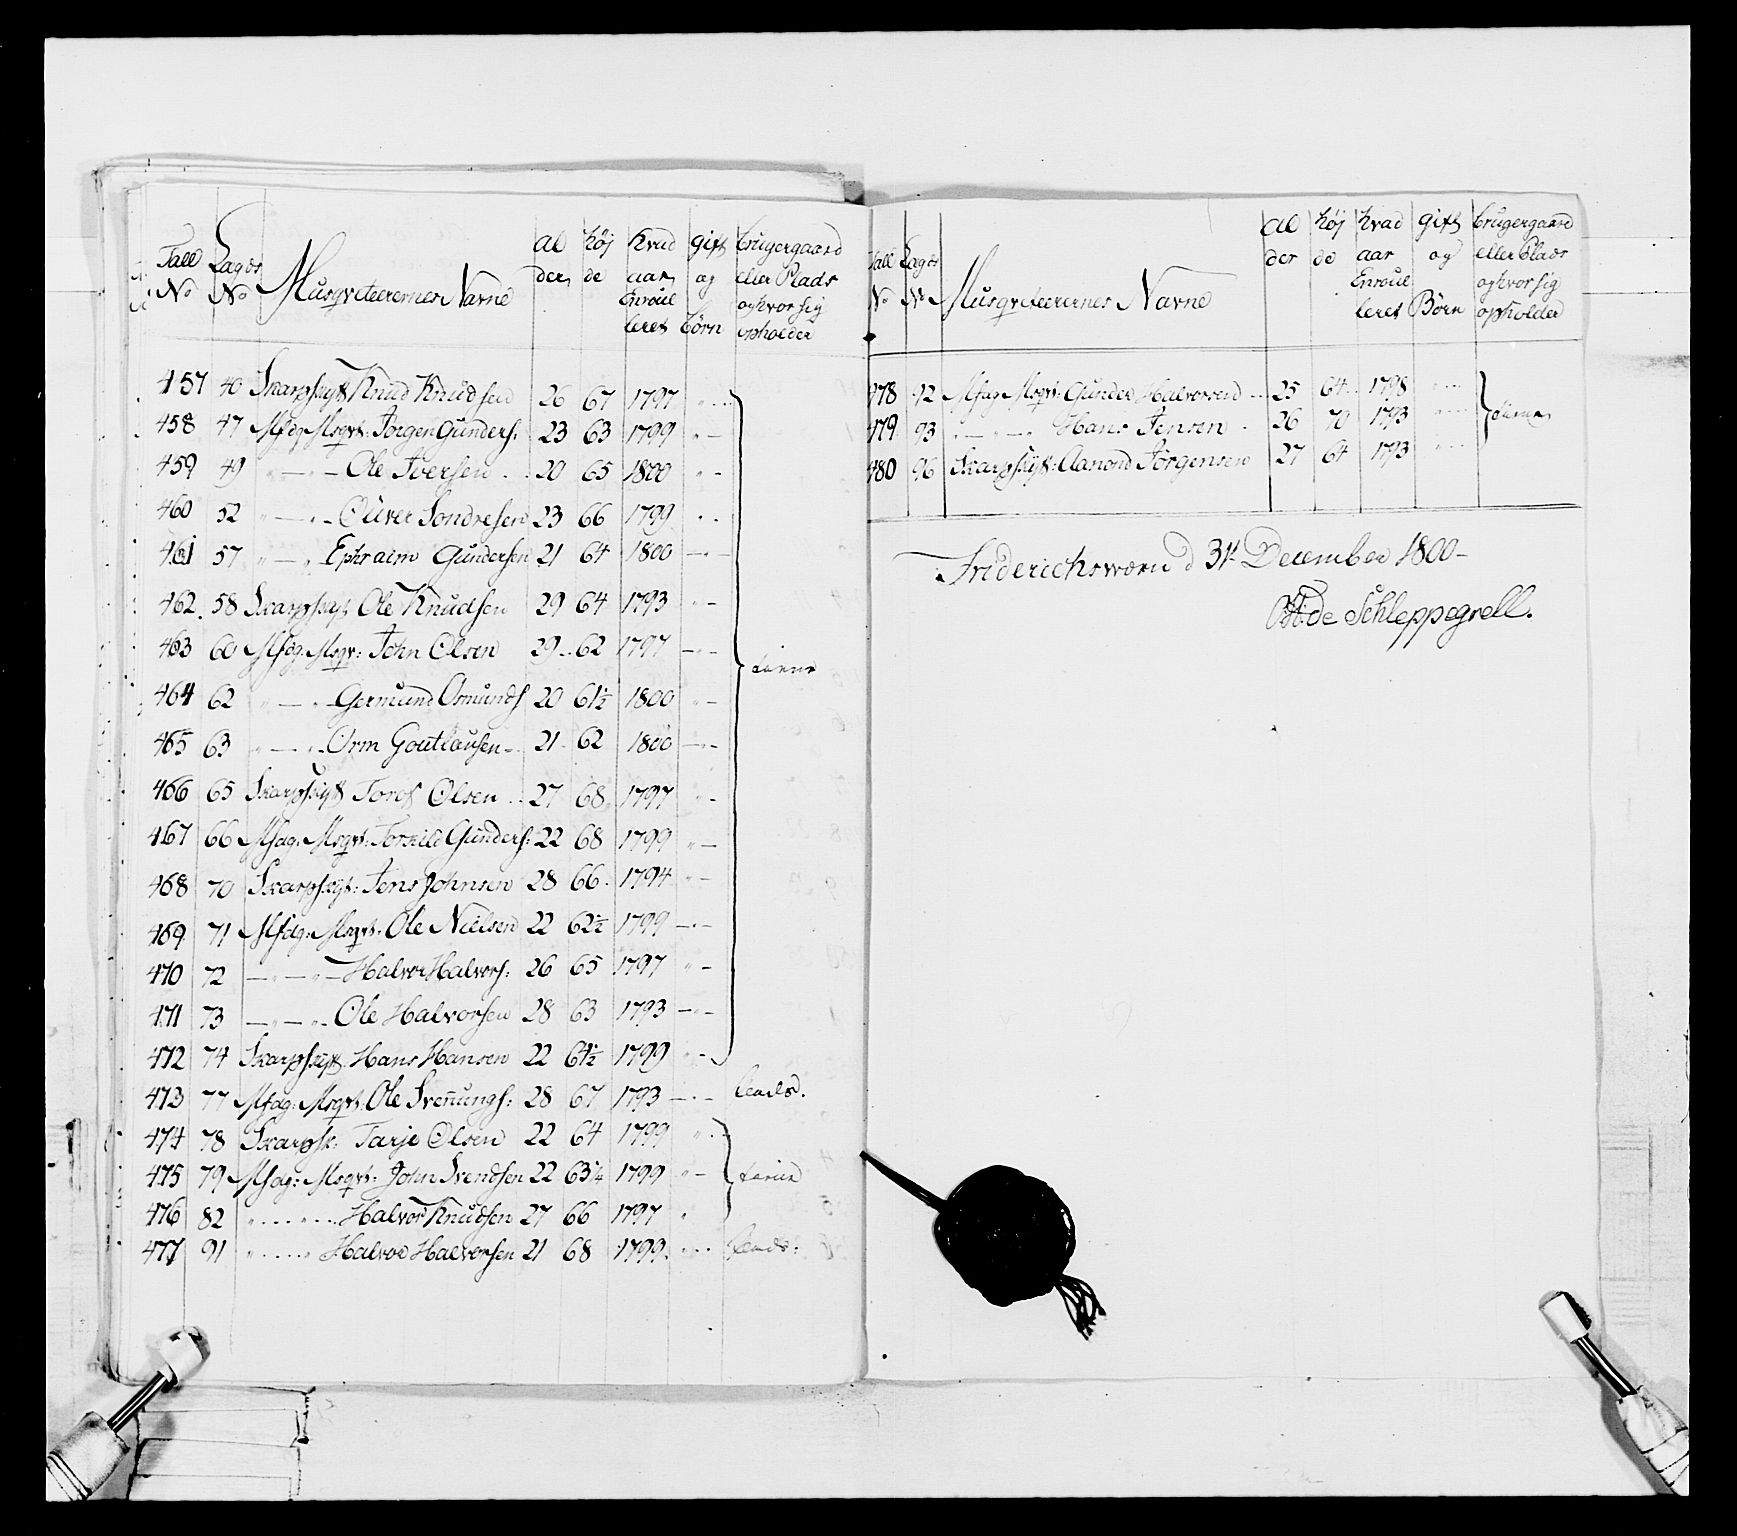 Tall No Lagds No Musqveteerernes Navne al der høj de hvad aar Enroul leret gift og børn brugergaard eller Plads og hvor sig opholder
457 40 Skarpskyt Knud Knudsen 26 67 1797 " "
458 47 Msdg Msqvt: Jørgen Gunders: 23 63 1799 " —
459 49 " — " — Ole Iversen 20 65 1800 " —
460 52 " — " — Oliver Sondresen 23 66 1799 " "
461 57 " — " Ephraim Gundersen 21 64 1800 — " —
462 58 Skarpskyt Ole Knudsen 29 64 1793 " —
463 60 Msdg Msqv: John Olsen 29 62 1797 — " — tienr
464 62 " — " — Germund Osmunds 20 61½ 1800 " —
465 63 " — " — Orm Goutlausen 21 62 1800 — " —
466 65 Skarpskyt Olsen 27 68 1797 " —
467 66 Msdg: Msqvt: Torkild Gunders: 22 68 1799 " —
468 70 Skarpskyt: Jens Johnsen 28 66 1794 " —
469 71 Msdg: Msqvt: Ole Nielsen 22 62½ 1799 — " —
470 72 — " — " — Halvor Halvors: 26 65 1797 " —
471 73 — " — " — Ole Halvorsen 28 63 1793 — " —
472 74 Skarpskyt Hans Hansen 22 64½ 1799 " —
473 77 Msdg: Msqvt: Ole Svenungs: 28 67 1793 — " — leads.
474 78 Skarpsk: Tarje Olsen 22 64 1799 " "
475 79 Msdg: Msqvt: John Svendsen 22 63¼ 1799 " — tienr
476 82 " .... " ... Halvor Knudsen 27 66 1797 "
477 91 " ..... " Halvor Halvorsen 21 68 1799 " " leads:
Tall No Lagds No Musqveteerernes Navne al der høj de hvad aar Enroul leret gift og Børn brugergaard eller Plads og hvor sig opholder
478 92 Msdg Msqvt: Gunder Halvorsen 25 64 1798 " "
479 93 " — " — Hans Jensen 26 70 1793 " " tienr
480 96 Skarpskyt: Aanond Jørgensen 27 64 1793 " "
Friderichsværn d 31t December 1800 –
de Schleppegrell.